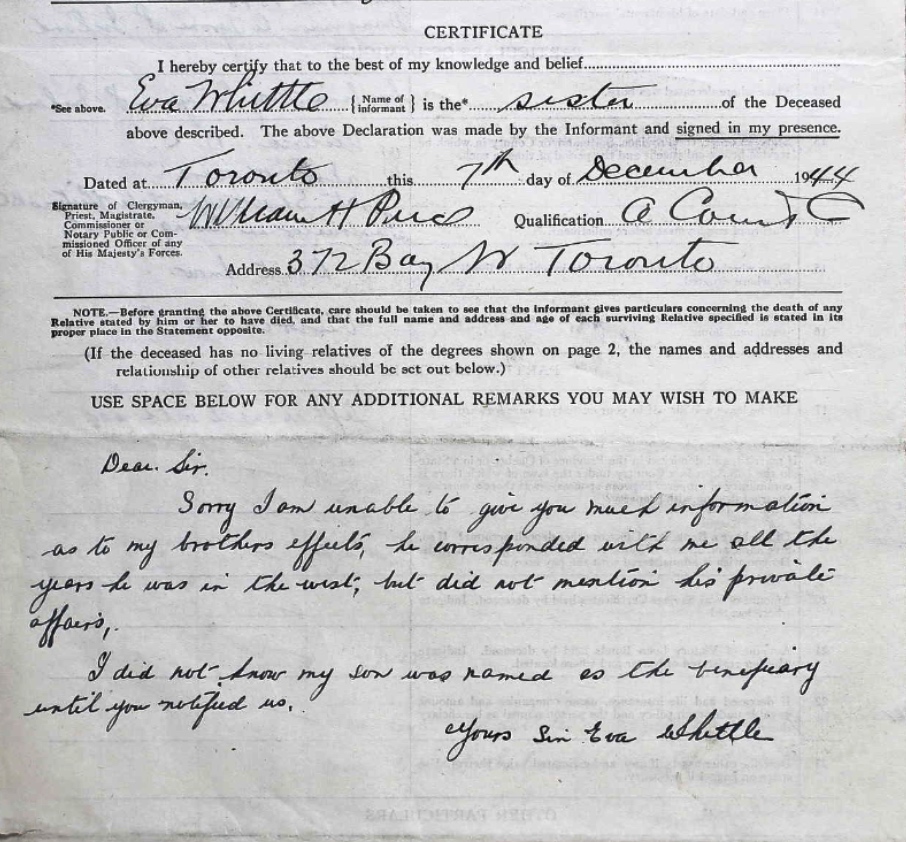 CERTIFICATE
I hereby certify that to the best of my knowledge and belief
*See above. Eva Whittle {Name of informant} is the* sister of the Deceased
above described. The above Declaration was made by the Informant and signed in my presence.
Dated at Toronto this 7th day of December 1944
Signature of Clergyman,
Priest, Magistrate,
Commissioner or
Notary Public or Com-
missioned Officer of any
of His Majesty's Forces.
William H Qualification A
Address 372 Bay Toronto
NOTE.—Before granting the above Certificate, care should be taken to see that the informant gives particulars concerning the death of any
Relative stated by him or her to have died, and that the full name and address and age of each surviving Relative specified is stated in its
proper place in the Statement opposite.
(If the deceased has no living relatives of the degrees shown on page 2, the names and addresses and
relationship of other relatives should be set out below.)
USE SPACE BELOW FOR ANY ADDITIONAL REMARKS YOU MAY WISH TO MAKE
Dear. Sir.
Sorry I am unable to give you much information
as to my brothers effects, he corresponded with me all the
years he was in the west, but did not mention his private
affairs,.
I did not know my son was named as the benefiary
until you notified us.
Yours Sin Eva Whittle